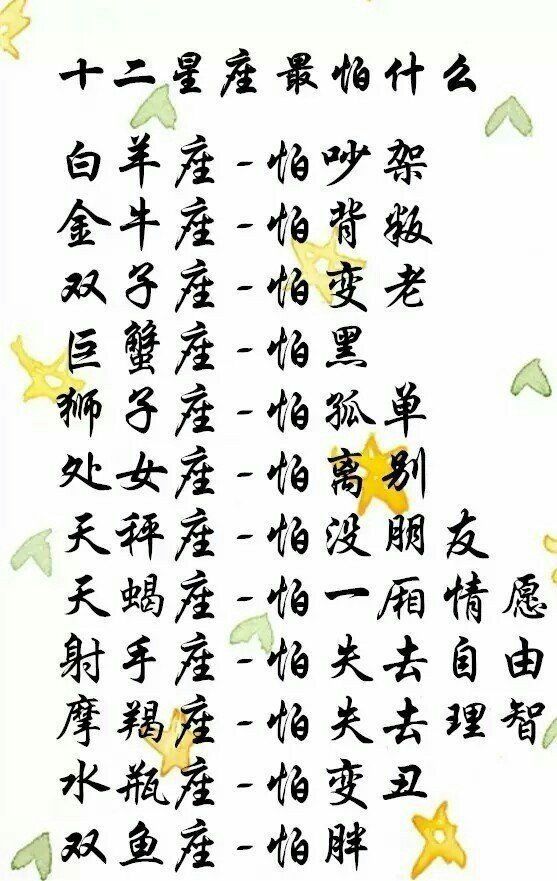 十二星座最怕什么
白羊座-怕吵架
金牛座-怕背叛
双子座-怕变老
巨蟹座-怕黑
狮子座-怕孤单
处女座-怕离别
天秤座-怕没朋友
天蝎座-怕一厢情愿
射手座-怕失去自由
摩羯座-怕失去理智
水瓶座-怕变丑
双鱼座-怕胖